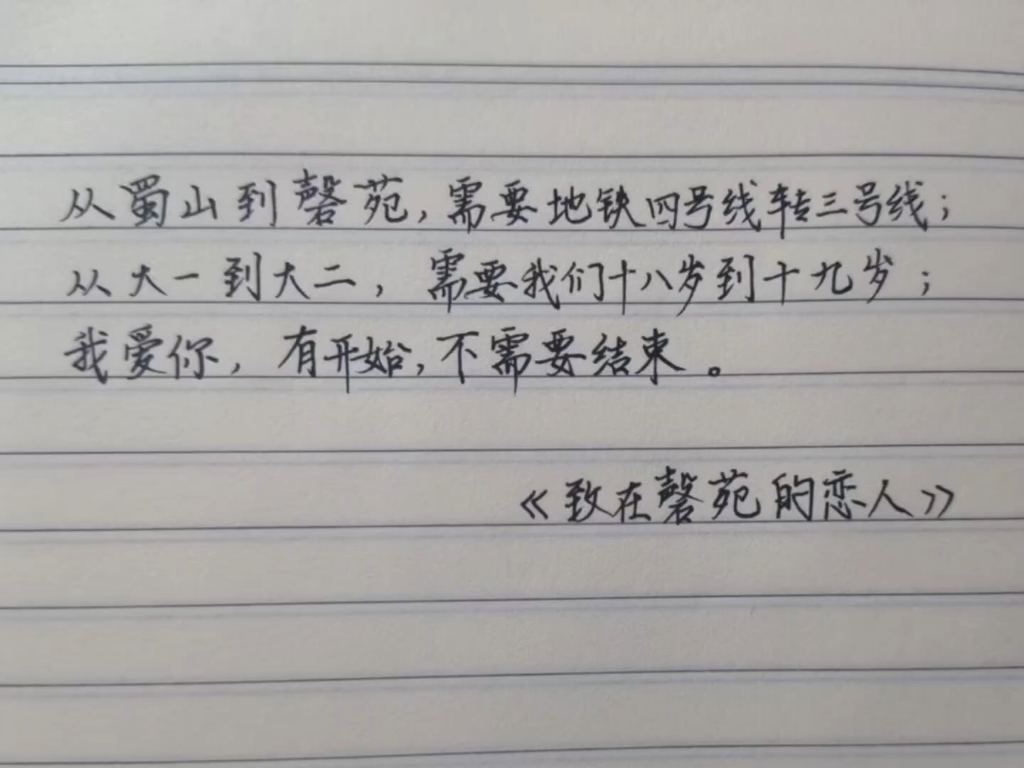 从蜀山到磬苑,需要地铁四号线转三号线;
从大一到大二,需要我们十八岁到十九岁;
我爱你,有开始,不需要结束。
《致在磬苑的恋人》